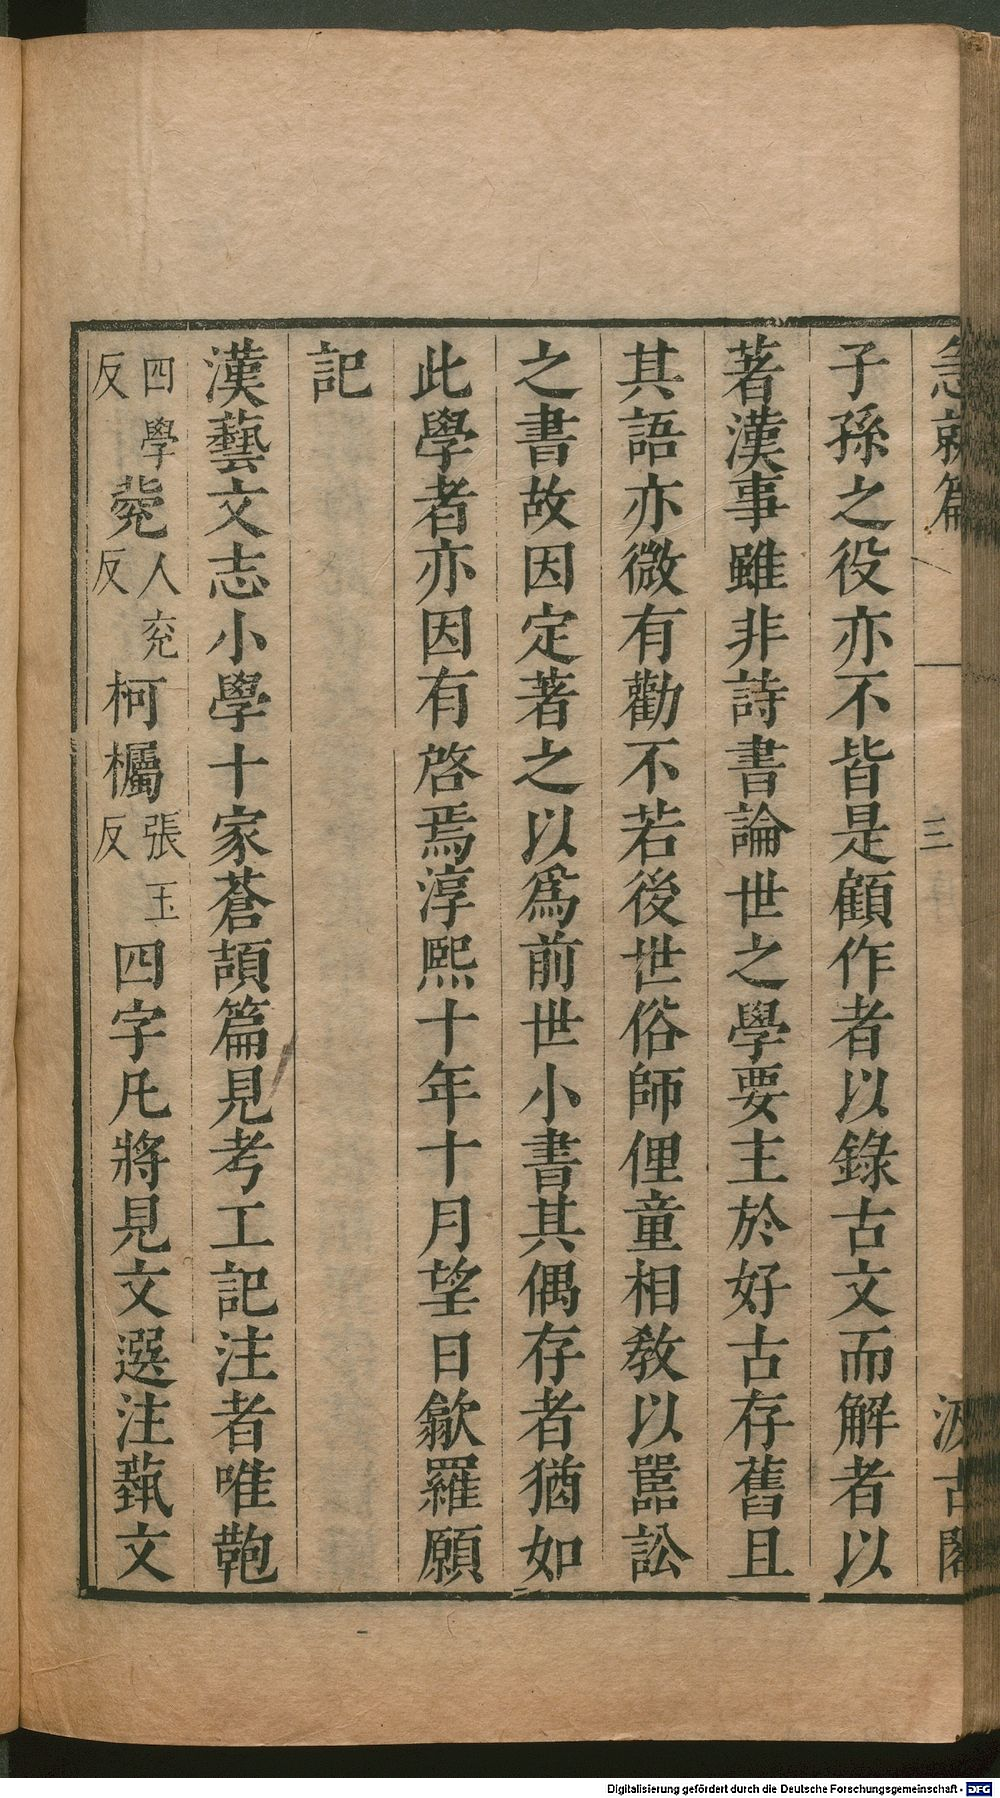 急就篇 三 汲古閣
子孫之役亦不皆是顧作者以錄古文而解者以
著漢事雖非詩書論世之學要主於好古存舊且
其語亦微有勸不若後世俗師俚童相教以嚚訟
之書故因定著之以為前世小書其偶存者猶如
此學者亦因有啓焉淳熙十年十月望日歙羅願
記
漢藝文志小學十家蒼頡篇見考工記注者唯鞄
四學反㼱人兖反柯欘張玉反四字凡將見文選注蓺文
Digitalisierung gefördert durch die Deutsche Forschungsgemeinschaft - DFG